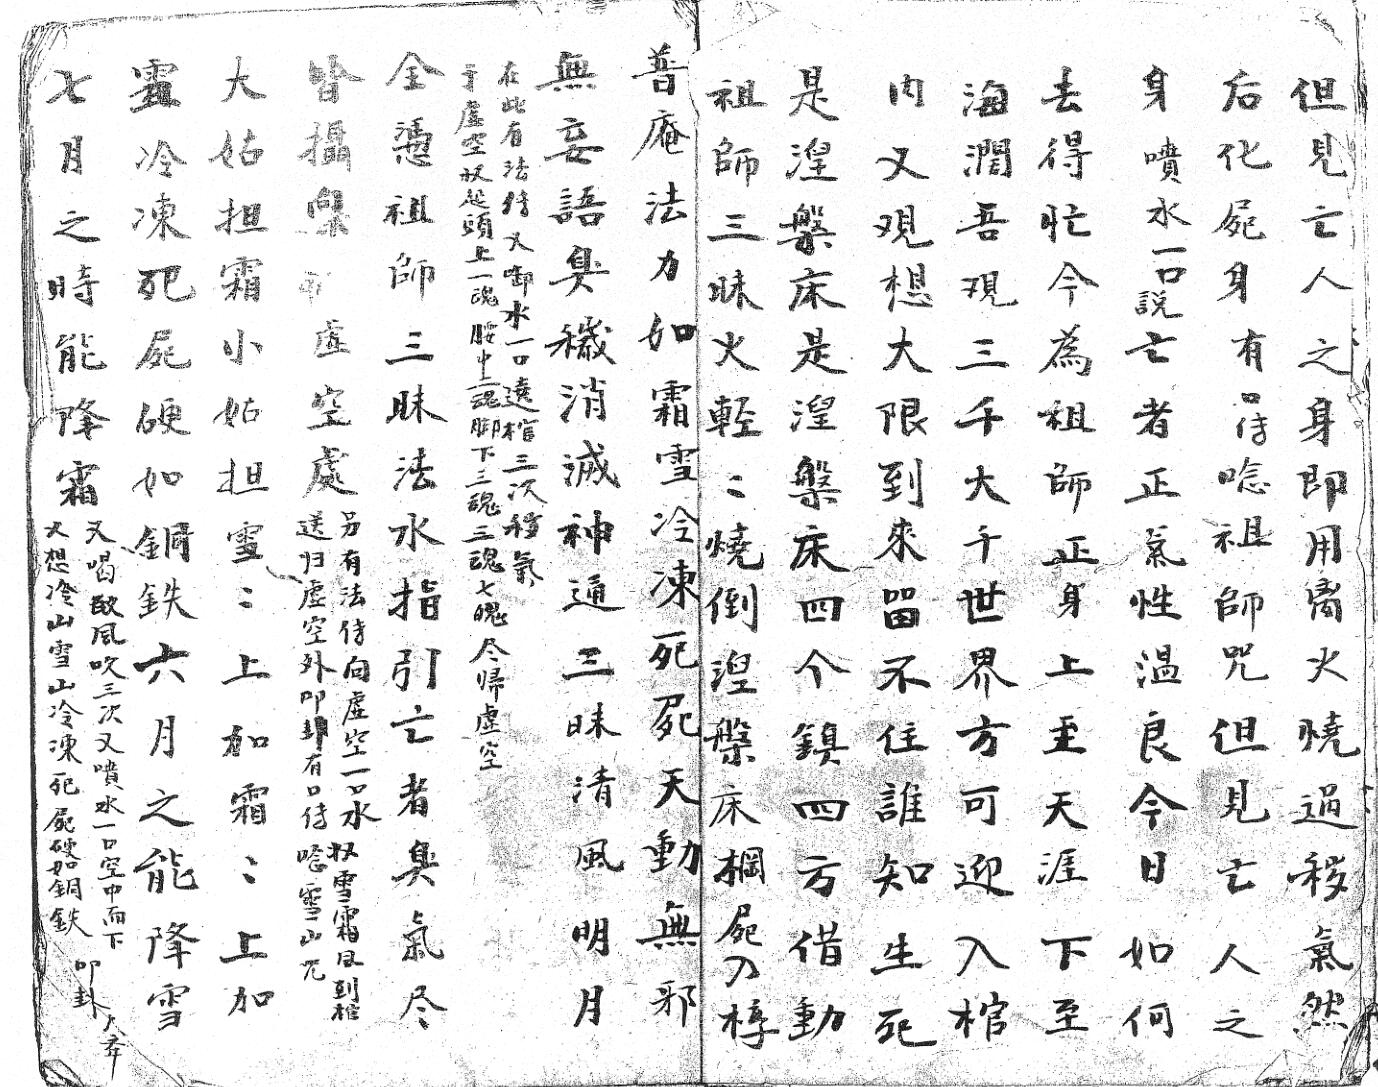 但見亡人之身即用离火燒過穢氣然
后化屍身有口侍唸祖師咒但見亡人之
身噴水一口説亡者正氣性温良今日如何
去得忙今為祖師正身上至天涯下至
海濶吾观三千大千世界方可迎入棺
内又观想大限到來留不住誰知生死
是湼槃床是湼槃床四个鎖四方借動
祖師三昧火輕〻燒倒湼槃床棡屍入椁
普庵法力如霜雪冷凍死屍天動無邪
無妄語臭穢消滅神通三昧清風明月
在此有法侍又喞水一口遶棺三次穢氣
于虚空収起頭上一魂腰中二魂脚下三魂三魂七魄尽归虚空
全憑祖師三昧法水指引亡者臭氣尽
皆攝 虚空處
另有法侍向虚空一口水収雪霜风到棺
送归虚空外叩卦有口侍唸雪山咒
大姑担霜小姑担雪〻上加霜〻上加
雪冷凍死屍硬如銅鉄六月之能降雪
七月之時能降霜
又喝 風吹三次又噴水一口空中而下
又想冷山雪山冷凍死屍硬如銅鉄 叩卦大斉